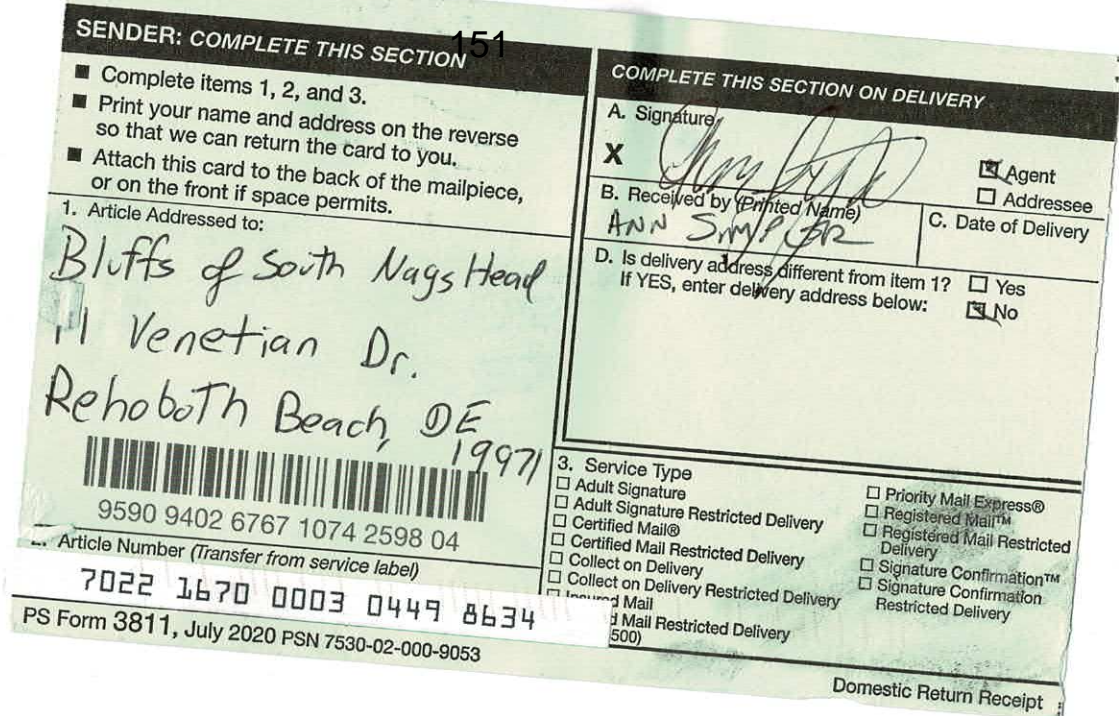 151
SENDER: COMPLETE THIS SECTION
■ Complete items 1, 2, and 3.
■ Print your name and address on the reverse
so that we can return the card to you.
■ Attach this card to the back of the mailpiece,
or on the front if space permits.
1. Article Addressed to:
Bluffs of South Nags Head
11 Venetian Dr.
Rehoboth Beach, DE
19971
9590 9402 6767 1074 2598 04
2. Article Number (Transfer from service label)
7022 1670 0003 0449 8634
PS Form 3811, July 2020 PSN 7530-02-000-9053
COMPLETE THIS SECTION ON DELIVERY
A. Signature
X
☒ Agent
☐ Addressee
B. Received by (Printed Name)
ANN
C. Date of Delivery
D. Is delivery address different from item 1? ☐ Yes
If YES, enter delivery address below: ☒ No
3. Service Type
☐ Adult Signature
☐ Adult Signature Restricted Delivery
☐ Certified Mail®
☐ Certified Mail Restricted Delivery
☐ Collect on Delivery
☐ Collect on Delivery Restricted Delivery
☐ Insured Mail
d Mail Restricted Delivery
500)
☐ Priority Mail Express®
☐ Registered Mail™
☐ Registered Mail Restricted
Delivery
☐ Signature Confirmation™
☐ Signature Confirmation
Restricted Delivery
Domestic Return Receipt